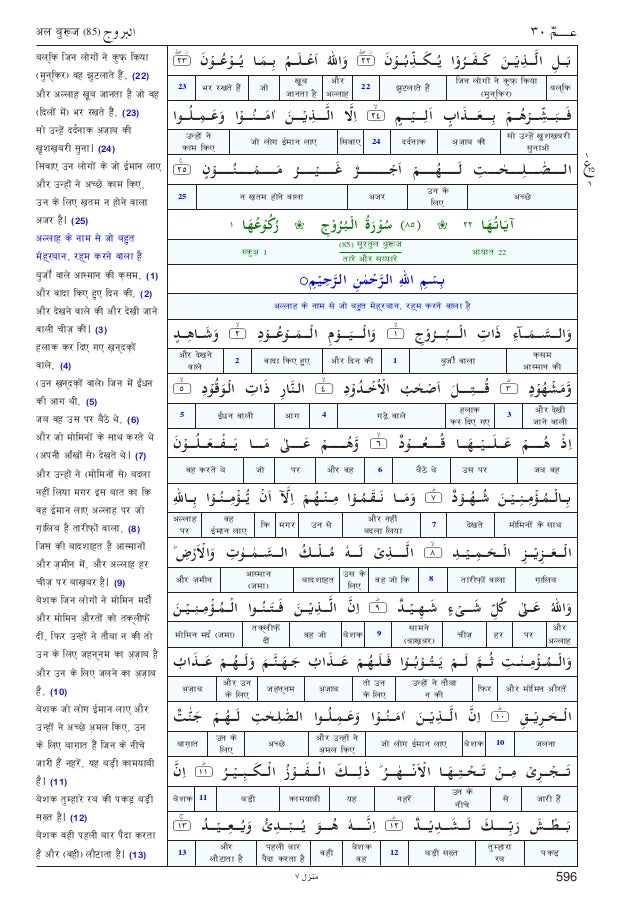 अल बुरूज (85) البروج
عـمّ ٣٠
बल्कि जिन लोगों ने कुफ़्र किया
(मुन्किर) वह झुटलाते हैं, (22)
और अल्लाह खूब जानता है जो वह
(दिलों में) भर रखते हैं, (23)
सो उन्हें दर्दनाक अज़ाब की
खुशख़बरी सुना। (24)
सिवाए उन लोगों के जो ईमान लाए
और उन्हों ने अच्छे काम किए,
उन के लिए ख़तम न होने वाला
अजर है। (25)
अल्लाह के नाम से जो बहुत
मेहरबान, रहम करने वाला है
बुर्जों वाले आस्मान की क़सम, (1)
और वादा किए हुए दिन की, (2)
और देखने वाले की और देखी जाने
वाली चीज़ की। (3)
हलाक कर दिए गए ख़न्दक़ों
वाले, (4)
(उन ख़न्दक़ों वाले) जिन में ईंधन
की आग थी, (5)
जब वह उस पर बैठे थे, (6)
और जो मोमिनों के साथ करते थे
(अपनी आँखों से) देखते थे। (7)
और उन्हों ने (मोमिनों से) बदला
नहीं लिया मगर इस बात का कि
वह ईमान लाए अल्लाह पर जो
ग़ालिब है तारीफ़ों वाला, (8)
जिस की बादशाहत है आस्मानों
और ज़मीन में, और अल्लाह हर
चीज़ पर बाख़बर है। (9)
बेशक जिन लोगों ने मोमिन मर्दों
और मोमिन औरतों को तक्लीफ़ें
दीं, फिर उन्हों ने तौबा न की तो
उन के लिए जहन्नम का अज़ाब है
और उन के लिए जलने का अज़ाब
है, (10)
बेशक जो लोग ईमान लाए और
उन्हों ने अच्छे अमल किए, उन
के लिए बाग़ात हैं जिन के नीचे
जारी हैं नहरें, यह बड़ी कामयाबी
है। (11)
बेशक तुम्हारे रब की पकड़ बड़ी
सख़्त है। (12)
बेशक वही पहली बार पैदा करता
है और (वही) लौटाता है। (13)
بَلِ الَّذِيْنَ كَفَرُوْا يُكَذِّبُوْنَ ﴿٢٢﴾ وَاللهُ اَعْلَمُ بِمَا يُوْعُوْنَ ﴿٢٣﴾
बल्कि जिन लोगों ने कुफ़्र किया (मुन्किर) झुटलाते हैं 22 और अल्लाह खूब जानता है जो भर रखते हैं 23
فَبَشِّرْهُمْ بِعَذَابٍ اَلِيْمٍ ﴿٢٤﴾ اِلَّا الَّذِيْنَ اٰمَنُوْا وَعَمِلُوا
सो उन्हें खुशख़बरी सुनाओ अज़ाब की दर्दनाक 24 सिवाए जो लोग ईमान लाए उन्हों ने काम किए
الصّٰلِحٰتِ لَهُمْ اَجْرٌ غَيْرُ مَمْنُوْنٍ ﴿٢٥﴾
अच्छे उन के लिए अजर न ख़तम होने वाला 25
اٰيَاتُهَا ٢٢ ❀ (٨٥) سُوْرَةُ الْبُرُوْجِ ❀ رُكُوْعُهَا ١
आयात 22 (85) सूरतुल बुरूज तारे और सय्यारे रुकूअ़ 1
بِسْمِ اللهِ الرَّحْمٰنِ الرَّحِيْمِ ○
अल्लाह के नाम से जो बहुत मेहरबान, रहम करने वाला है
وَالسَّمَآءِ ذَاتِ الْبُرُوْجِ ﴿١﴾ وَالْيَوْمِ الْمَوْعُوْدِ ﴿٢﴾ وَشَاهِدٍ
क़सम आस्मान की बुर्जों वाला 1 और दिन की वादा किए हुए 2 और देखने वाले
وَّمَشْهُوْدٍ ﴿٣﴾ قُتِلَ اَصْحٰبُ الْاُخْدُوْدِ ﴿٤﴾ النَّارِ ذَاتِ الْوَقُوْدِ ﴿٥﴾
और देखी जाने वाली 3 हलाक कर दिए गए गढ़े वाले 4 आग ईंधन वाली 5
اِذْ هُمْ عَلَيْهَا قُعُوْدٌ ﴿٦﴾ وَّهُمْ عَلٰى مَا يَفْعَلُوْنَ
जब वह उस पर बैठे थे 6 और वह पर जो वह करते थे
بِالْمُؤْمِنِيْنَ شُهُوْدٌ ﴿٧﴾ وَمَا نَقَمُوْا مِنْهُمْ اِلَّآ اَنْ يُّؤْمِنُوْا بِاللهِ
मोमिनों के साथ देखते 7 और नहीं बदला लिया उन से मगर कि वह ईमान लाए अल्लाह पर
الْعَزِيْزِ الْحَمِيْدِ ﴿٨﴾ الَّذِيْ لَهٗ مُلْكُ السَّمٰوٰتِ وَالْاَرْضِ
ग़ालिब तारीफ़ों वाला 8 वह जो कि उस के लिए बादशाहत आस्मान (जमा) और ज़मीन
وَاللهُ عَلٰى كُلِّ شَيْءٍ شَهِيْدٌ ﴿٩﴾ اِنَّ الَّذِيْنَ فَتَنُوا الْمُؤْمِنِيْنَ
और अल्लाह पर हर चीज़ सामने (बाख़बर) 9 बेशक वह जो तक्लीफ़ें दीं मोमिन मर्द (जमा)
وَالْمُؤْمِنٰتِ ثُمَّ لَمْ يَتُوْبُوْا فَلَهُمْ عَذَابُ جَهَنَّمَ وَلَهُمْ عَذَابُ
और मोमिन औरतें फिर उन्हों ने तौबा न की तो उन के लिए अज़ाब जहन्नम और उन के लिए अज़ाब
الْحَرِيْقِ ﴿١٠﴾ اِنَّ الَّذِيْنَ اٰمَنُوْا وَعَمِلُوا الصّٰلِحٰتِ لَهُمْ جَنّٰتٌ
जलना 10 बेशक जो लोग ईमान लाए और उन्हों ने अमल किए अच्छे उन के लिए बाग़ात
تَجْرِيْ مِنْ تَحْتِهَا الْاَنْهٰرُ ذٰلِكَ الْفَوْزُ الْكَبِيْرُ ﴿١١﴾ اِنَّ
जारी हैं से उन के नीचे नहरें यह कामयाबी बड़ी 11 बेशक
بَطْشَ رَبِّكَ لَشَدِيْدٌ ﴿١٢﴾ اِنَّهٗ هُوَ يُبْدِئُ وَيُعِيْدُ ﴿١٣﴾
पकड़ तुम्हारा रब बड़ी सख़्त 12 बेशक वह वही पहली बार पैदा करता है और लौटाता है 13
منزل ٧
596